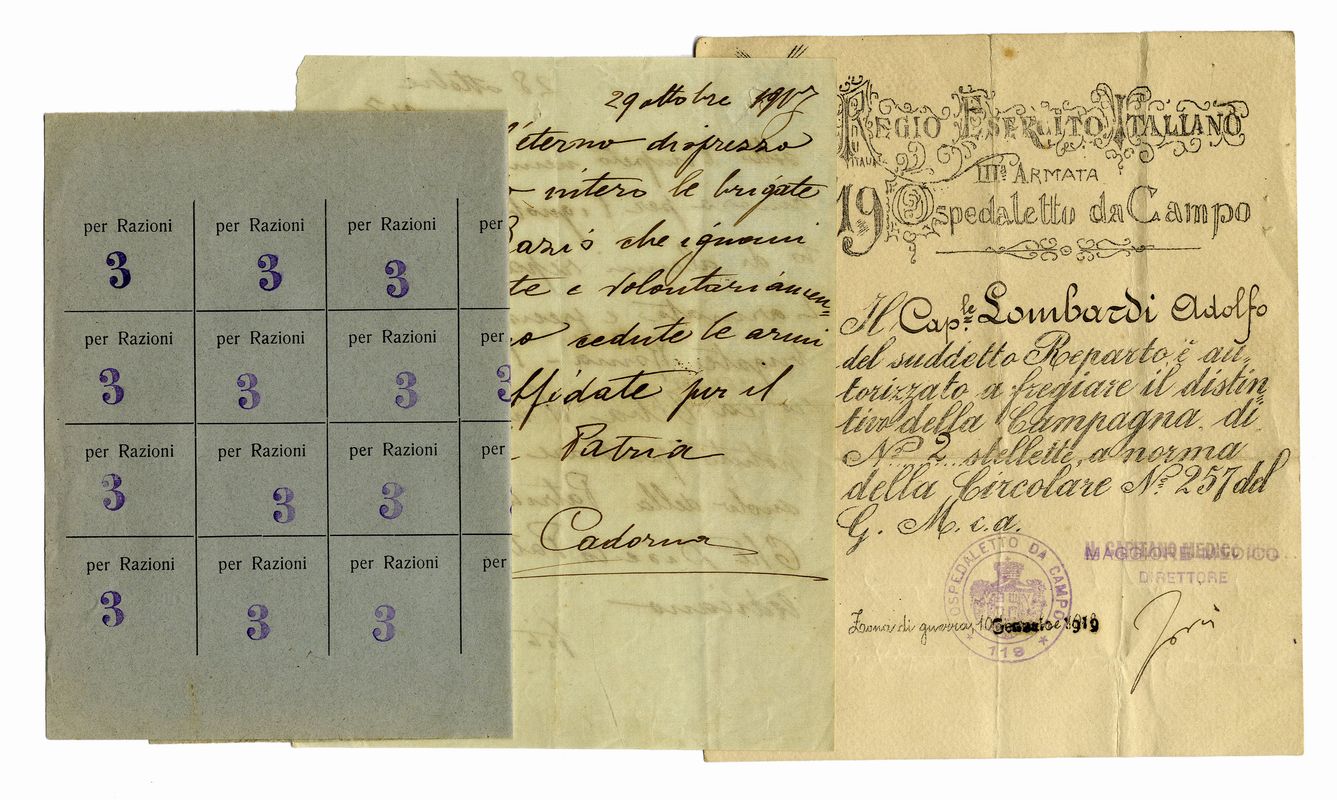 per Razioni per Razioni per Razioni per
3 3 3
per Razioni per Razioni per Razioni per
3 3 3 3
per Razioni per Razioni per Razioni per
3 3 3
per Razioni per Razioni per Razioni per
3 3 3
29 ottobre 1917
l'eterno disprezzo
intero le brigate
che ignomi
te e volontariamen=
cedute le armi
affidate per il
Patria
Cadorna
REGIO ESERCITO ITALIANO
IIIª ARMATA
19 Ospedaletto da Campo
Il Cap.le Lombardi Adolfo
del suddetto Reparto è au=
torizzato a fregiare il distin=
tivo della Campagna di
N.º 2 stellette, a norma
della Circolare N.º 257 del
G. M. c. a.
MAGGIORE MEDICO
DIRETTORE
OSPEDALETTO DA CAMPO
119
Zona di guerra, 10 1919